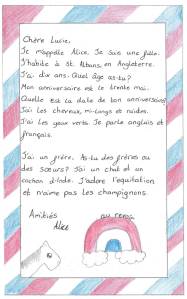 Chère Lucie,
Je m'appelle Alice. Je suis une fille.
J'habite à St. Albans, en Angleterre.
J'ai dix ans. Quel âge as-tu?
Mon anniversaire est le trente mai.
Quelle est la date de ton anniversaire?
J'ai les cheveux, mi-longs et raides.
J'ai les yeux verts. Je parle anglais et
français.
J'ai un frère. As-tu des frères ou
des sœurs? J'ai un chat et un
cochon d'Inde. J'adore l'equitation
et n'aime pas les champignons.
Amitiés
Alice